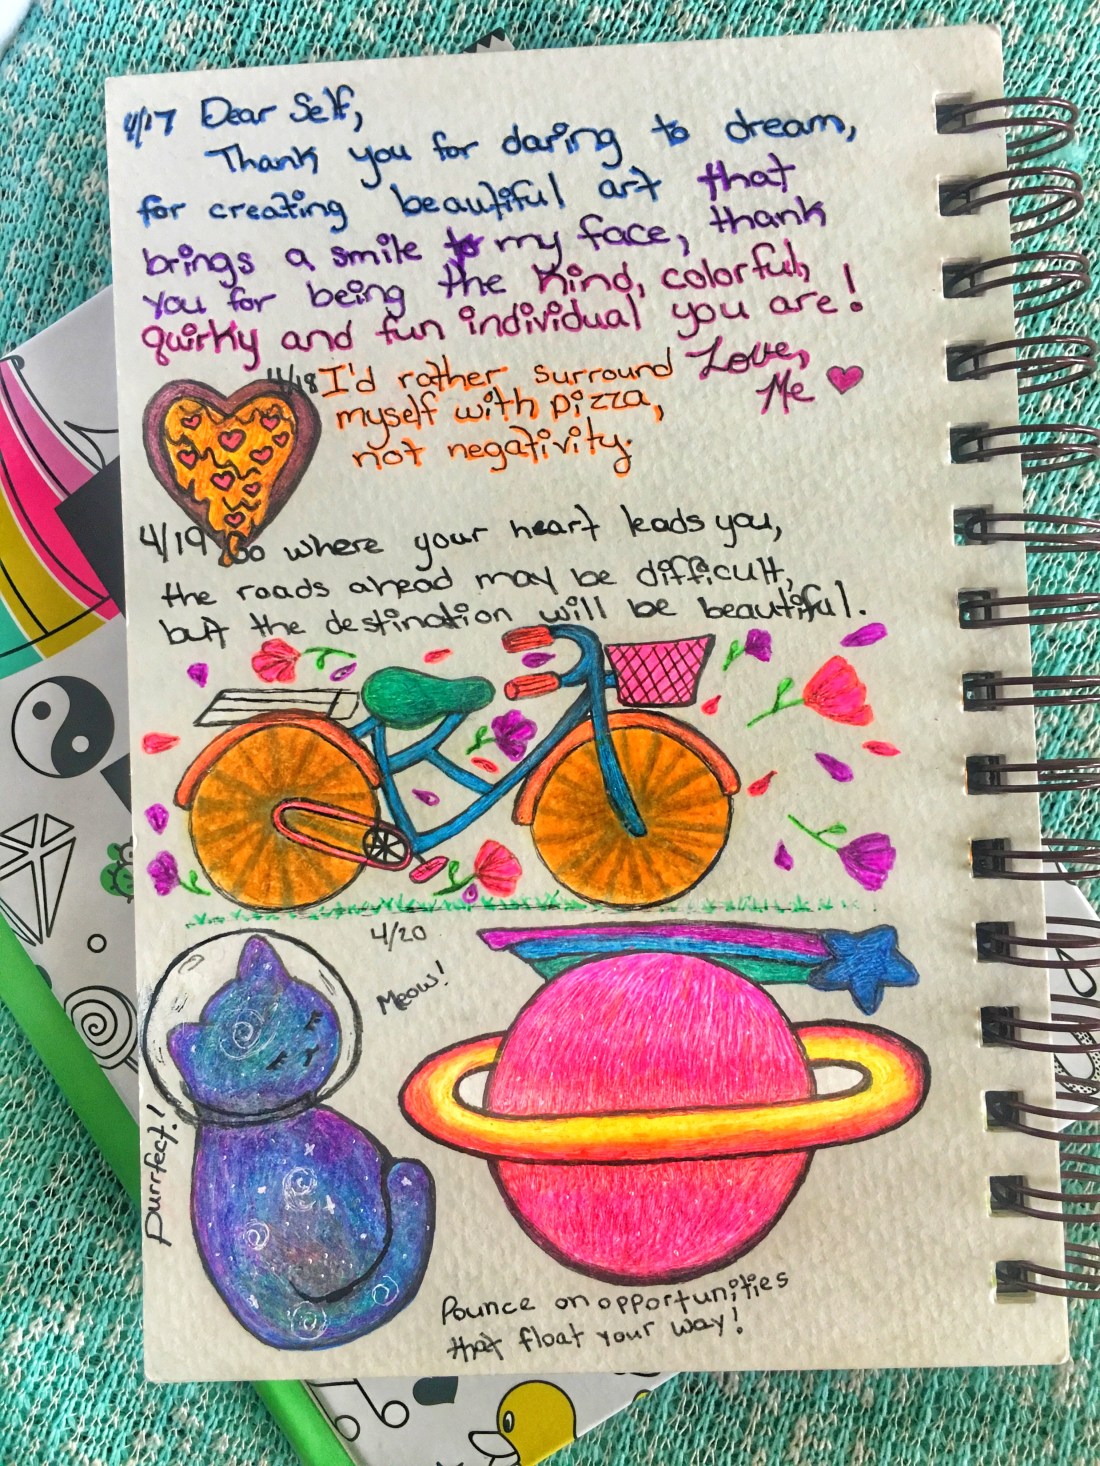 4/17 Dear Self,
Thank you for daring to dream,
for creating beautiful art that
brings a smile to my face, thank
you for being the kind, colorful,
quirky and fun individual you are!
Love,
Me
4/18 I'd rather surround
myself with pizza,
not negativity.
4/19 Go where your heart leads you,
the roads ahead may be difficult,
but the destination will be beautiful.
4/20
Meow!
Purrfect!
Pounce on opportunities
that float your way!